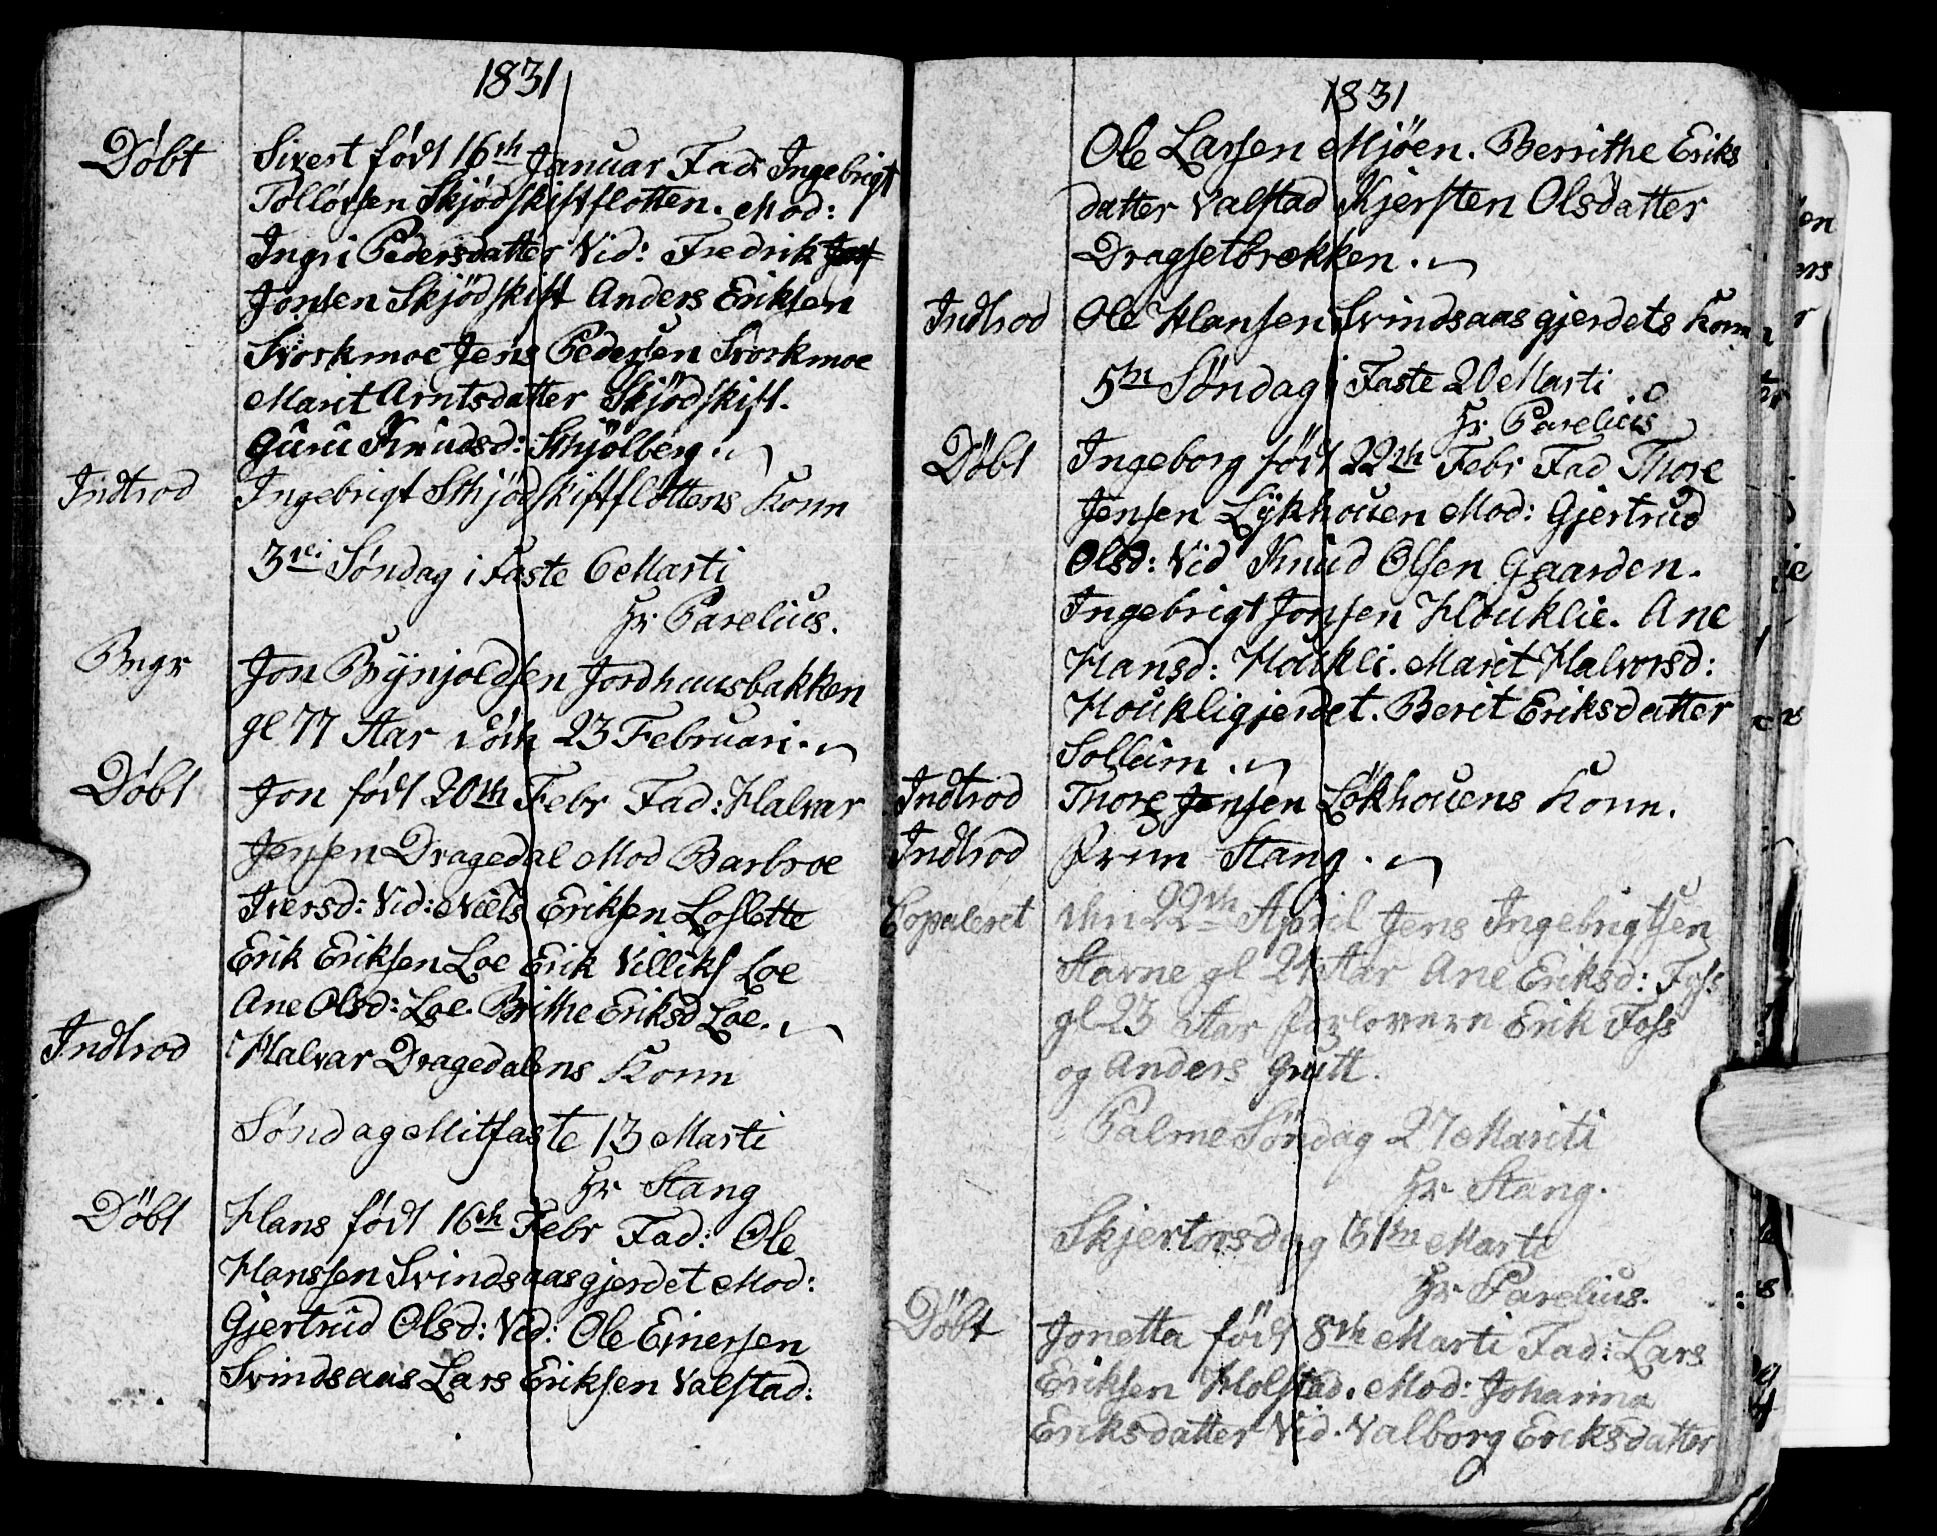 1831
Döbt Sivert født 16th Januar Fad: Ingebrigt
Tollövsen Skjödskiftflotten. Mod:
Ingri Pedersdatter Vid: Fredrik
Jonsen Skjödskift Anders Eriksen
Svorkmoe Jens Pedersen Svorkmoe
Marit Arntsdatter Skjödskift.
Guru Knudsd: Skjölberg.
Indtrod Ingebrigt Skjödskiftflottens Konn
3die Söndag i Faste 6 Marti
Hr Parelius.
Begr Jon Brynjoldsen Jordhuusbakken
gl 77 Aar död 23 Februari.
Döbt Jon født 20th Febr Fad: Halvar
Jensen Dragedal Mod Barbroe
Iversd: Vid: Niels Eriksen Loslette
Erik Eriksen Loe Erik Villiks Loe
Ane Olsd: Loe. Brithe Eriksd Loe.
Indtrod Halvar Dragedalens Konn
Söndag Mitfaste 13 Marti
Hr Stang
Döbt Hans født 16th Febr Fad: Ole
Hanssen Svindsaasgjerdet Mod:
Gjertrud Olsd: Vid: Ole Einersen
Svindsaas Lars Eriksen Valstad:
1831
Ole Larsen Mjöen. Berrithe Eriks
datter Valstad Kjersten Olsdatter
Dragsetbrækken.
Indtrod Ole Hansen Svindsaasgjerdets Konn
5te Söndag i Faste 20 Marti
Hr Parelius
Döbt Ingeborg født 22th Febr Fad Thore
Jensen Lykhouen Mod: Gjertrud
Olsd: Vid Knud Olsen Gaarden.
Ingebrigt Jonsen Houklie. Ane
Hansd: Houkli. Marit Halvorsd:
Houkligjerdet. Berit Eriksdatter
Sollium.
Indtrod Thore Jensen Lökhouens Konn.
Indtrod Frue Stang.
Copuleret den 22th April Jens Ingebrigtsen
Stavne gl 24 Aar Ane Eriksd: Foss
gl 23 Aar forlovere Erik Foss
og Anders Grutt.
Palme Söndag 27 Mariti
Hr Stang.
Skjertorsdag 31te Marti
Hr Parelius.
Döbt Jonetta född 8th Marti Fad: Lars
Eriksen Holstad. Mod: Johanna
Eriksdatter Vid. Valborg Eriksdatter